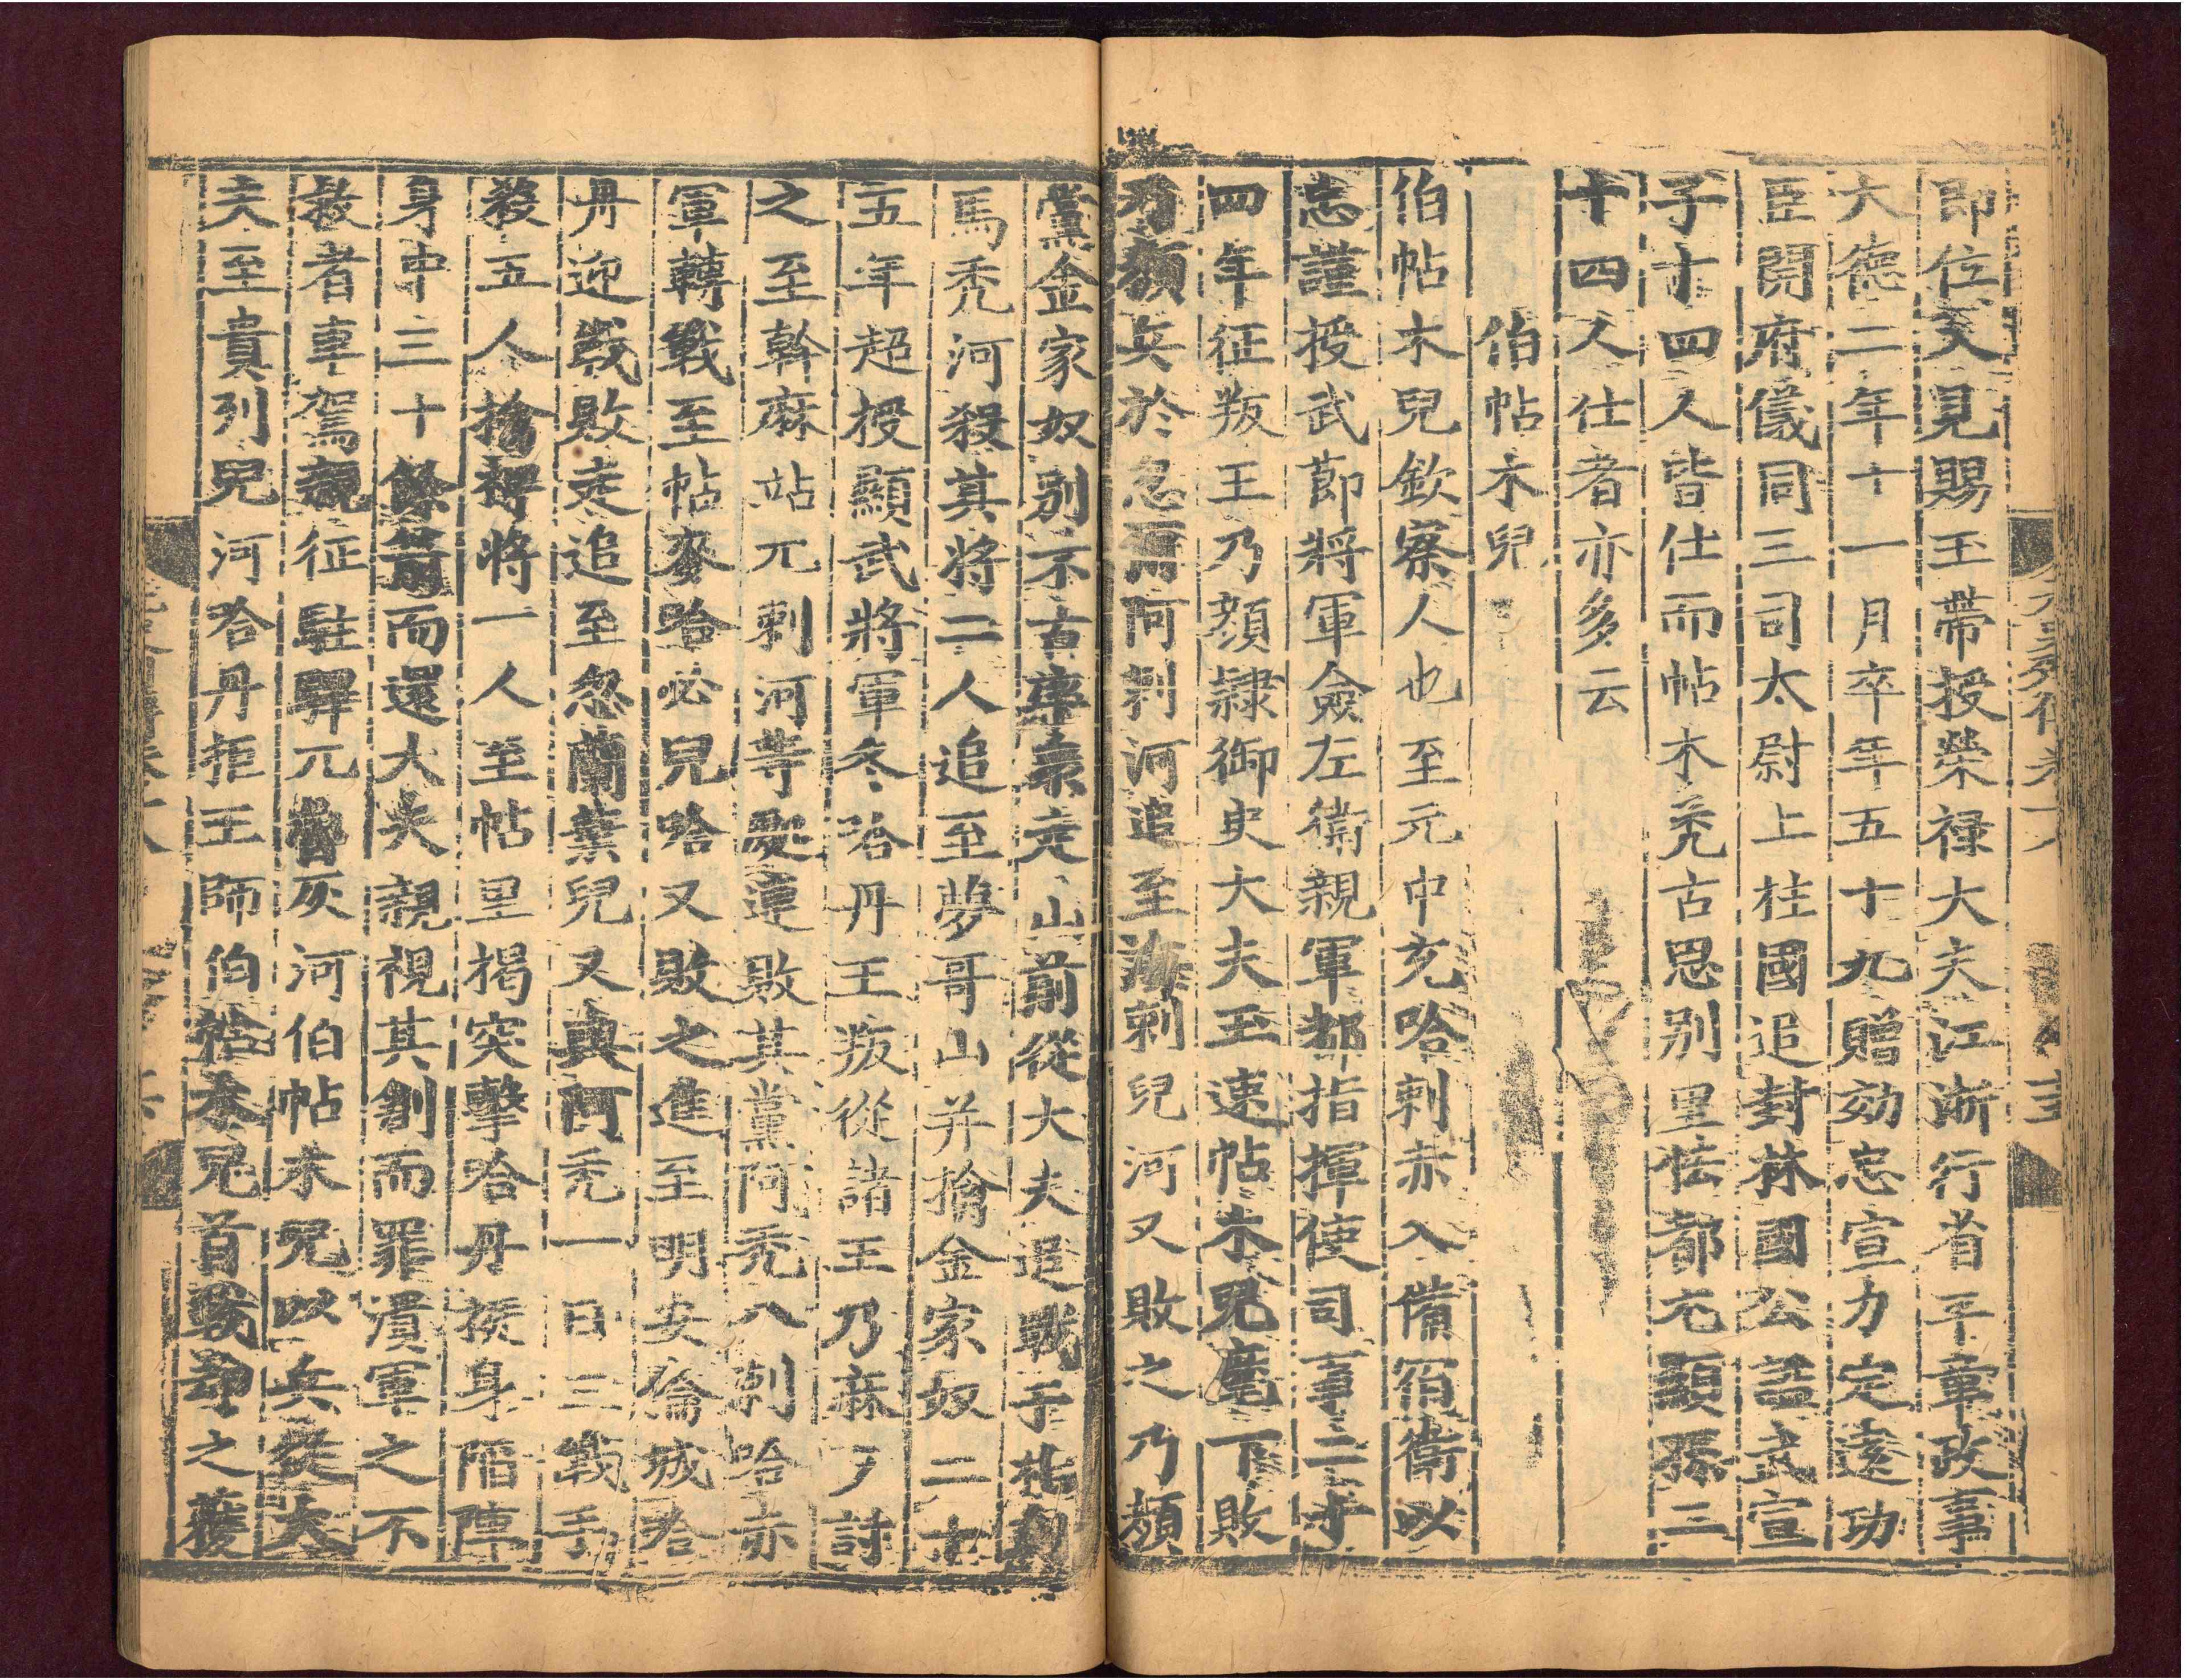 即位入見賜玉帶授榮禄大夫江浙行省平章政事
大德二年十一月卒年五十九贈効忠宣力定遠功
臣開府儀同三司太尉上柱國追封林國公諡武宣
子十四人皆仕而帖木禿古思别里怯都尤顯孫三
十四人仕者亦多云
伯帖木兒
伯帖木兒欽察人也至元中充哈剌赤入備宿衛以
忠謹授武節將軍僉左衛親軍都指揮使司事二十
四年征叛王乃顔隷御史大夫玉速帖木兒麾下敗
乃顔兵於忽爾阿剌河追至海剌兒河又敗之乃顔
黨金家奴别不古率衆走山前從大夫追戰于札剌
馬禿河殺其將二人追至夢哥山并擒金家奴二十
五年超授顯武將軍冬哈丹王叛從諸王乃麻歹討
之至斡麻站兀剌河等處連敗其黨阿禿八剌哈赤
軍轉戰至帖麥哈必兒哈又敗之進至明安倫城哈
丹迎戰敗走追至忽蘭葉兒又與阿禿一日三戰手
殺五人擒裨將一人至帖里揭突擊哈丹挺身陷陣
身中三十餘箭而還大夫親視其創而罪潰軍之不
救者車駕親征駐蹕兀魯灰河伯帖木兒以兵從大
夫至貴列兒河哈丹拒王師伯帖木兒首戰却之獲